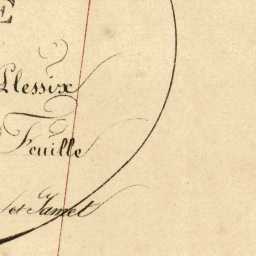 E
Plessix
Feuille
et Jamet